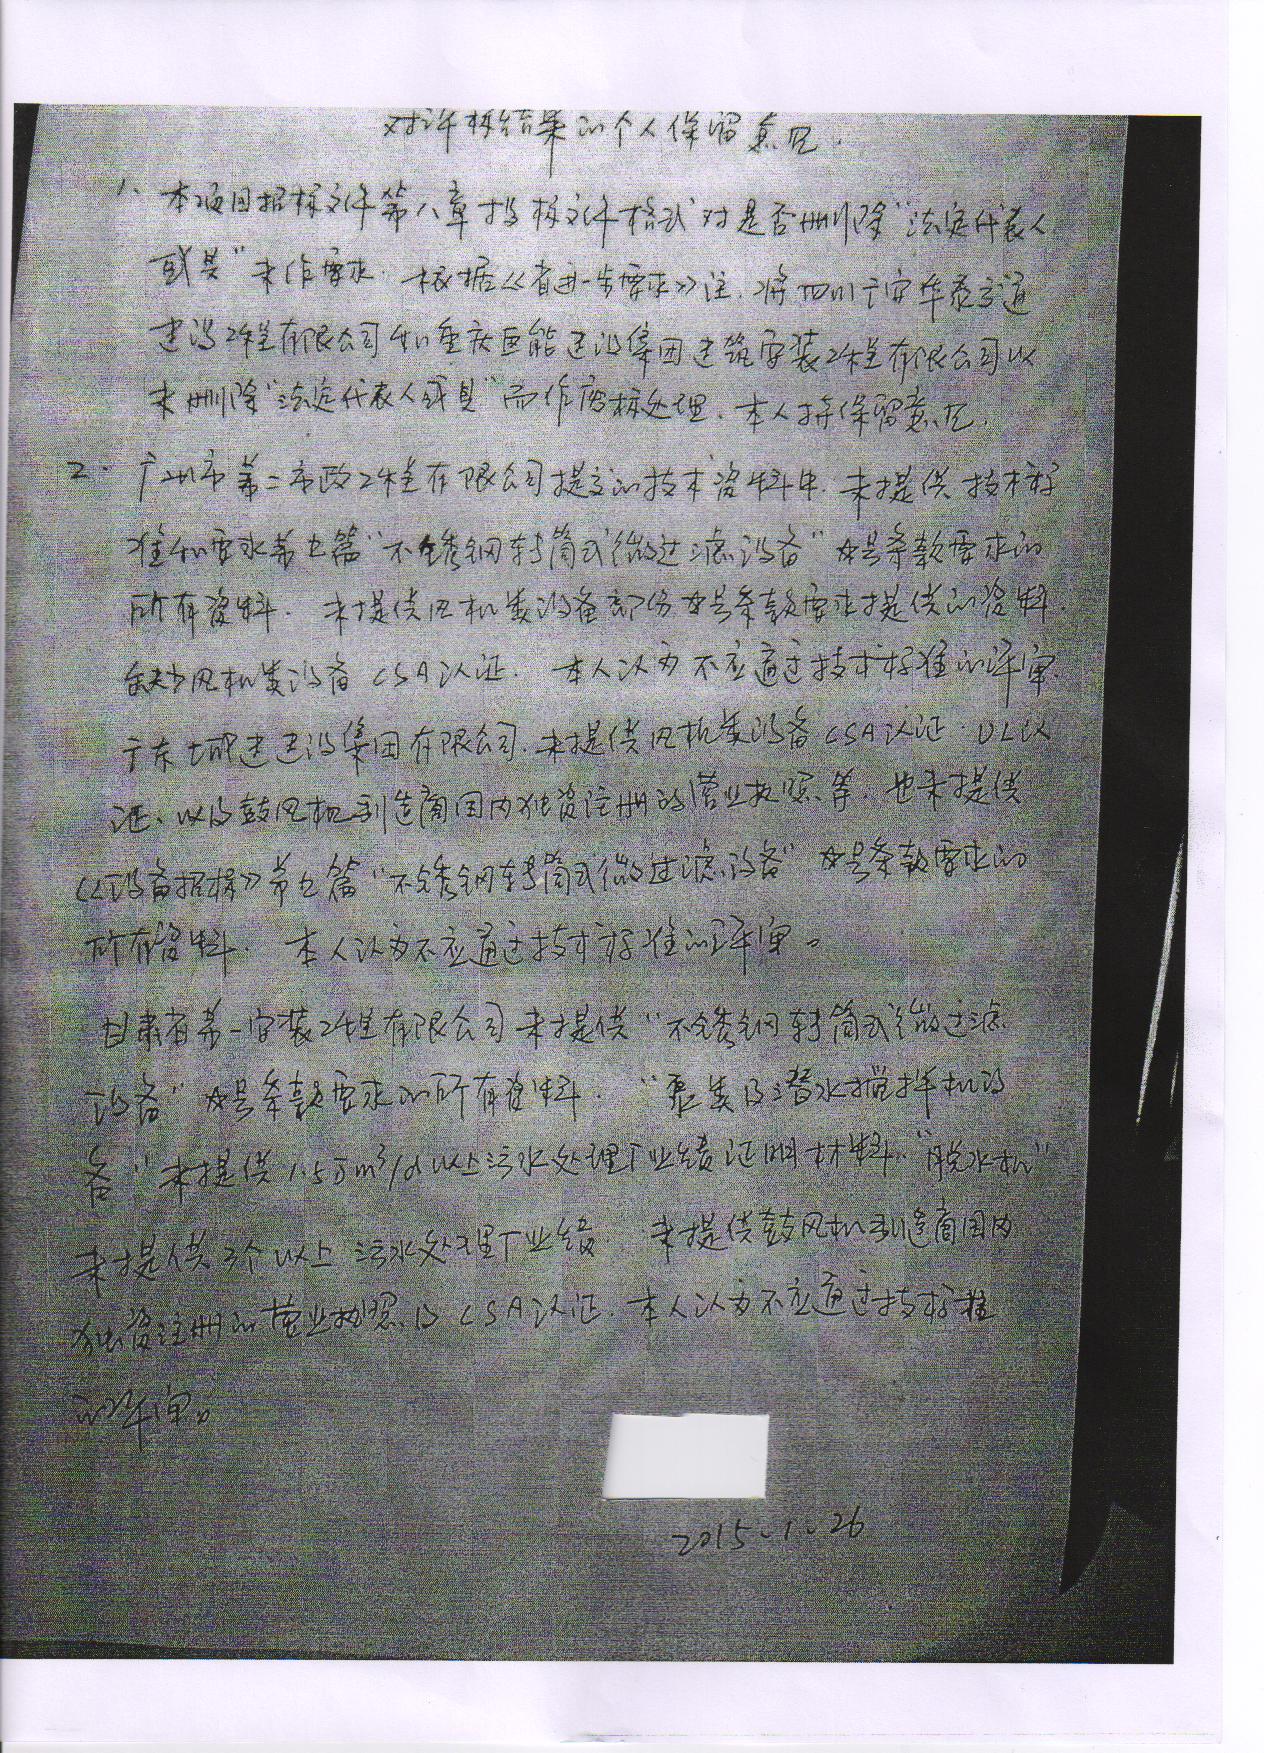 对评标结果的个人保留意见.
1、本项目招标文件第八章"投标文件格式"对是否删除"法定代表人
或其"未作要求. 根据《省进一步要求》注, 将四川广安华泰交通
建设工程有限公司和重庆巨能建设集团建筑安装工程有限公司以
未删除"法定代表人或其"而作废标处理, 本人持保留意见.
2. 广州市第二市政工程有限公司提交的技术资料中, 未提供技术标
准和要求第七篇"不锈钢转筒式微过滤设备"☆号条款要求的
所有资料. 未提供风机类设备部份☆号条款要求提供的资料.
缺少风机类设备CSA认证. 本人认为不应通过技术标准的评审.
广东城建达设集团有限公司, 未提供风机类设备CSA认证、UL认
证、以及鼓风机制造商国内独资注册的营业执照等. 也未提供
《设备招标》第七篇"不锈钢转筒式微过滤设备"☆号条款要求的
所有资料. 本人认为不应通过技术标准的评审。
甘肃省第一安装工程有限公司未提供"不锈钢转筒式微过滤
设备"☆号条款要求的所有资料. "泵类及潜水搅拌机设
备"未提供1.5万m³/d以上污水处理厂业绩证明材料. "脱水机"
未提供3个以上污水处理厂业绩. 未提供鼓风机制造商国内
独资注册的营业执照及CSA认证. 本人认为不应通过技标准
的评审。
2015.1.26